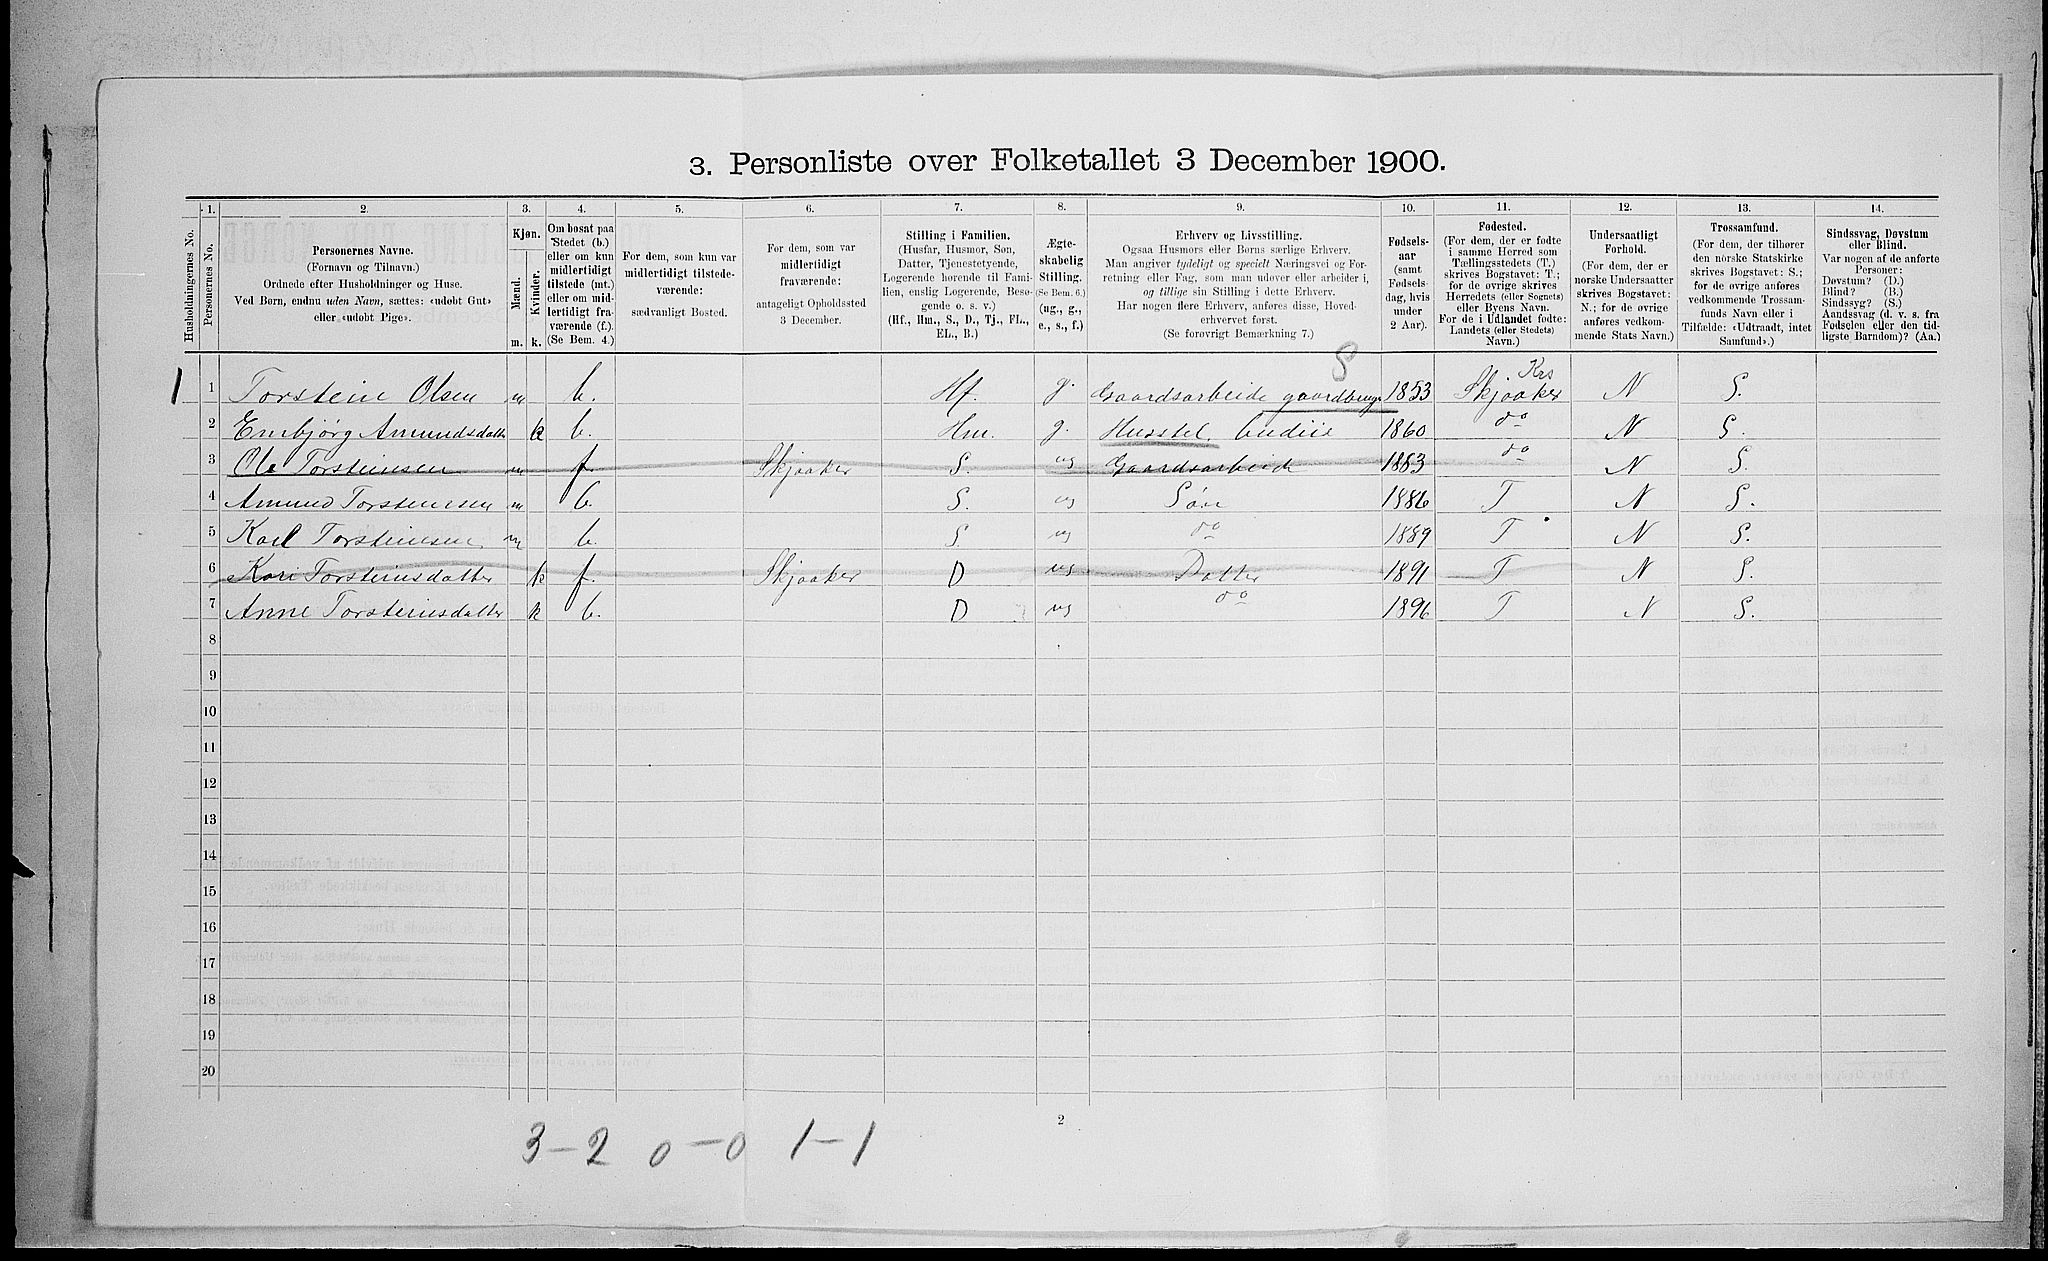 3. Personliste over Folketallet 3 December 1900.
1. 2. 3. 4. 5. 6. 7. 8. 9. 10. 11. 12. 13. 14.
Husholdningernes No.
Personernes No.
Personernes Navne.
(Fornavn og Tilnavn.)
Ordnede efter Husholdninger og Huse.
Ved Børn, endnu uden Navn, sættes: «udøbt Gut»
eller «udøbt Pige».
Kjøn.
Mænd.
Kvinder.
m. k.
Om bosat paa
Stedet (b.)
eller om kun
midlertidigt
tilstede (mt.)
eller om mid-
lertidigt fra-
værende (f.)
(Se Bem. 4.)
For dem, som kun var
midlertidigt tilstede-
værende:
sædvanligt Bosted.
For dem, som var
midlertidigt
fraværende:
antageligt Opholdssted
3 December.
Stilling i Familien.
(Husfar, Husmor, Søn,
Datter, Tjenestetyende,
Logerende hørende til Fami-
lien, enslig Logerende, Besø-
gende o. s. v.)
(Hf., Hm., S., D., Tj., FL.,
EL., B.)
Ægte-
skabelig
Stilling.
(Se Bem. 6.)
(ug., g.,
e., s., f.)
Erhverv og Livsstilling.
Ogsaa Husmors eller Børns særlige Erhverv.
Man angiver tydeligt og specielt Næringsvei og For-
retning eller Fag, som man udøver eller arbeider i,
og tillige sin Stilling i dette Erhverv.
Har nogen flere Erhverv, anføres disse, Hoved-
erhvervet først.
(Se forøvrigt Bemærkning 7.)
Fødsels-
aar
(samt
Fødsels-
dag, hvis
under
2 Aar).
Fødested.
(For dem, der er fødte
i samme Herred som
Tællingsstedets (T.)
skrives Bogstavet: T.;
for de øvrige skrives
Herredets (eller Sognets)
eller Byens Navn.
For de i Udlandet fødte:
Landets (eller Stedets)
Navn.)
Undersaatligt
Forhold.
(For dem, der er
norske Undersaatter
skrives Bogstavet:
N.; for de øvrige
anføres vedkom-
mende Stats Navn.)
Trossamfund.
(For dem, der tilhører
den norske Statskirke
skrives Bogstavet: S.;
for de øvrige anføres
vedkommende Trossam-
funds Navn eller i
Tilfælde: «Udtraadt, intet
Samfund».)
Sindssvag, Døvstum
eller Blind.
Var nogen af de anførte
Personer:
Døvstum? (D.)
Blind? (B.)
Sindssyg? (S.)
Aandssvag (d. v. s. fra
Fødselen eller den tid-
ligste Barndom)? (Aa.)
S Krs
1 1 Torstein Olsen m b. Hf. g. Gaardsarbeide gaardbruger 1853 Skjaaker N S.
2 Embjørg Amundsdatter k b. Hm. g. Husstel budeie 1860 do N S.
3 Ole Torsteinsen m f. Skjaaker S. ug Gaardsarbeide 1883 do N S.
4 Amund Torsteinsen m b. S. ug Søn 1886 T N S.
5 Karl Torsteinsen m b. S. ug do 1889 T N S.
6 Kari Torsteinsdatter k f. Skjaaker D ug Datter 1891 T N S.
7 Anne Torsteinsdatter k b. D ug do 1896 T N S.
8
9
10
11
12
13
14
15
16
17
18
19
20
2
3-2 0-0 1-1